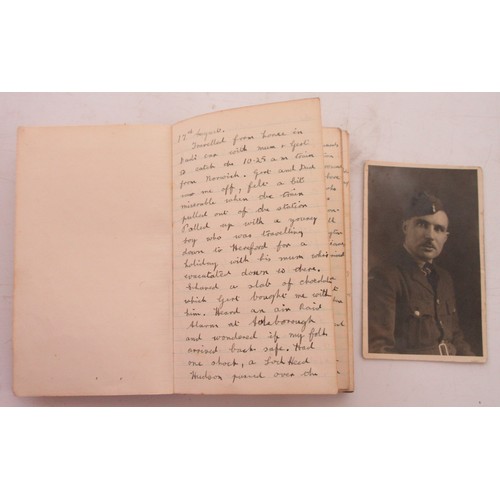 13th August.
Travelled from house in
Dad's car with mum & Gert.
to catch the 10-25 a.m train
from Norwich. Gert and Dad
saw me off, felt a bit
miserable when the train
pulled out of the station
Palled up with a young
boy who was travelling
down to Hereford for a
holiday with his mum who is
evacuated down there.
shared a slab of chocolate
which Gert bought me with
him. Heard an air Raid
Alarm at
and wondered if my folk
arrived back safe. Had
one shock, a Lock Heed
Hudson passed over the